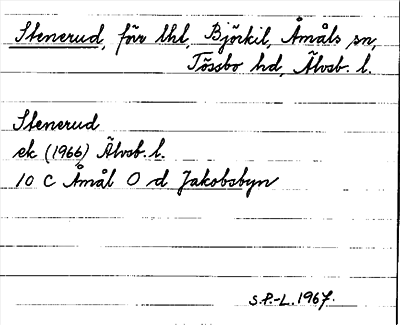 Stenerud, förr lhl, Björkil, Åmåls sn,
Tössbo hd, Älvsb. l.
Stenerud
ek (1966) Älvsb. l.
10 C Åmål O d Jakobsbyn
S.P.-L. 1967.